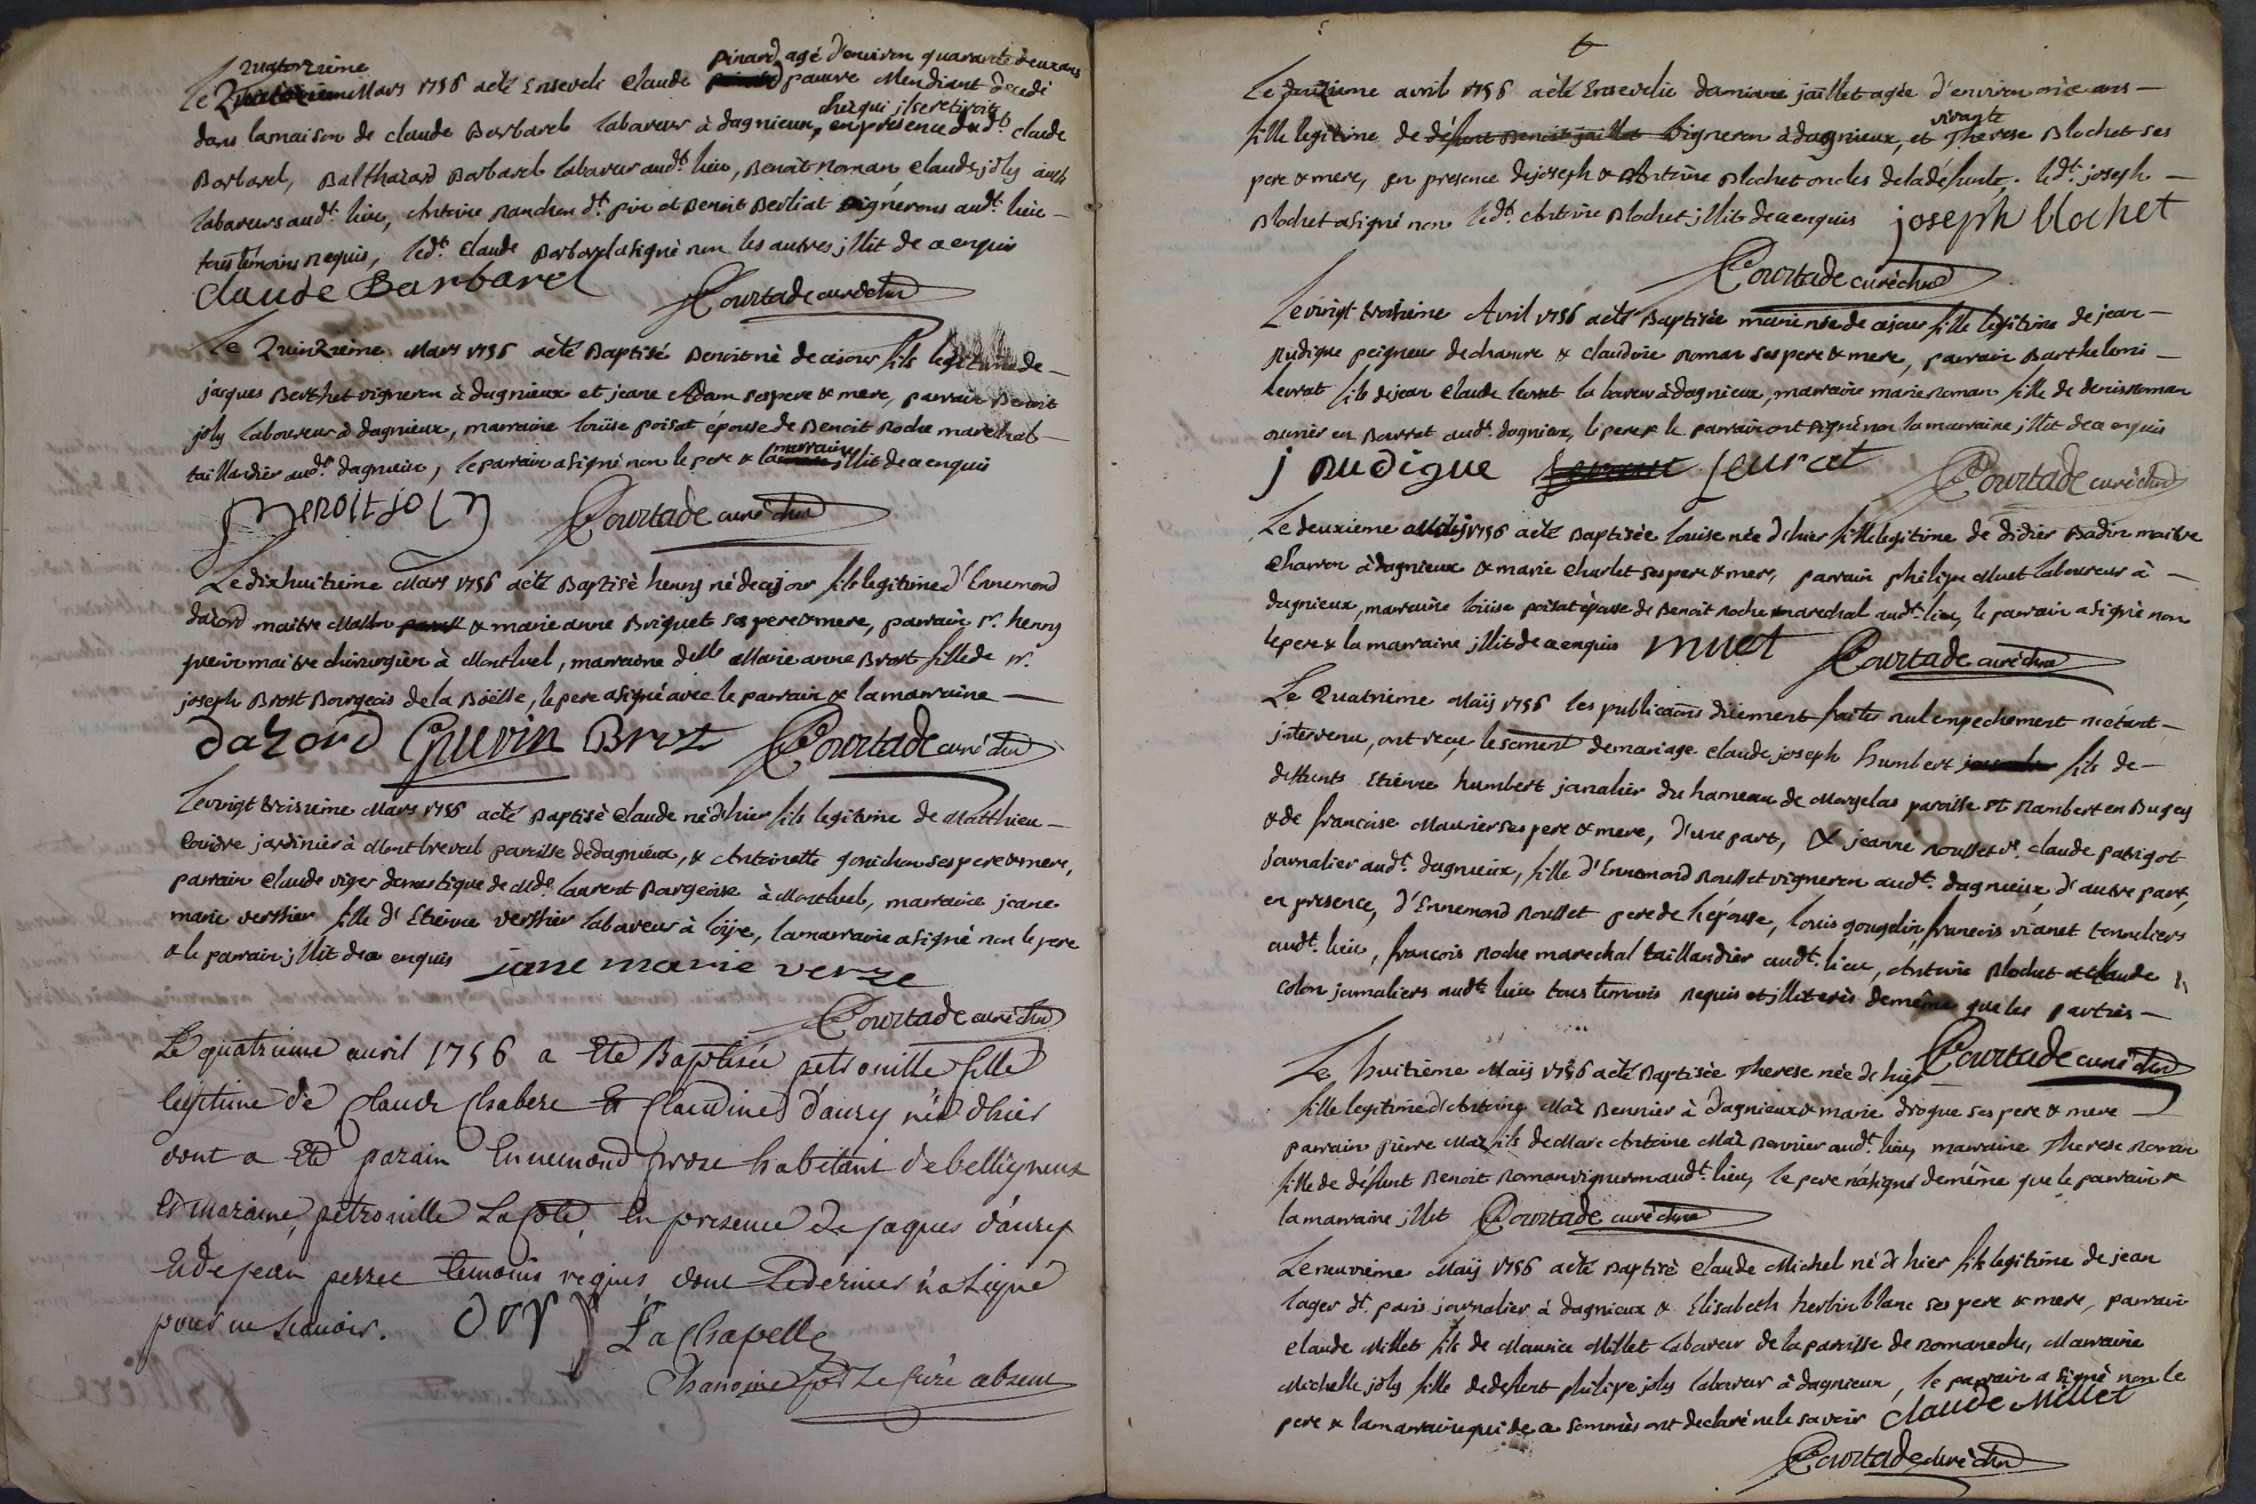 quatorzieme pinard, agé d'environ quarante deux ans
Le Mars 1756 a èté Enseveli Claude pauvre Mendiant decedè
chez qui il se retiroit
dans la maison de claude Barbarel laboureur à dagnieux, en présence dud.t claude
Barbarel, Balthazard Barbarel laboureur aud.t lieu, Benoit Roman, claude joly aussi
laboureurs aud.t lieu, Antoine Ranchon d.t pin et Benoit Berliat vignerons aud.t lieu
tous témoins requis, led.t claude Barbarel a signé non les autres illit. de ce enquis
claude Barbarel Courtade curé
Le Quinzieme Mars 1756 a èté Baptisé Benoit nè de ce jour fils legitime de
jacques Berthet vigneron à dagnieux et jeane Adam ses pere & mere, parrain Benoit
joly laboureur à dagnieux, marraine loüise poisat épouse de Benoit Roche maréchal
taillandier aud.t dagnieux, le parrain a signé non le pere & la marraine illit de ce enquis
Benoit joly Courtade curé
Le dix huitieme Mars 1756 a èté Baptisè henry né de ce jour fils legitime d'Ennemond
dazord maitre & marie anne Briquet ses pere & mere, parrain s.r henry
guerin maitre chirurgien à Montluel, marraine d.lle Marie anne Brost fille de s.r
joseph Brost Bourgeois de la Böësse, le pere a signé avec le parrain & la marraine
dazord Guerin Brost Courtade curé
Le vingt troisieme Mars 1756 a èté Baptisè claude né d'hier fils legitime de Matthieu
Coudre jardinier à Montbreval paroisse de dagnieux, & Antoinette gonichon ses pere & mere,
parrain claude viger domestique de Mde laurent Bourgeoise à Montluel, marraine jeane
marie verssier fille d'Etienne verssier laboureur à loije, la marraine a signé non le pere
& le parrain illit de ce enquis jane marie verze
Courtade curé
Le quatrieme avril 1756 a Eté Baptisée petronille fille
legitime de Claude Chabere & Claudine d'aury née d'hier
dont a Eté parain Ennemond proze habitant de belligneux
et maraine petronille La Cote, en presence de jaques d'aury
et de jean perret temoins requis, dont Le dernier n'a signé
pour ne scavoir. dory La Chapelle
Chanoine pr Le Curé absent
Le douzieme avril 1756 a èté Ensevelie damiane jaillet agée d'environ onze ans
vivante
fille legitime de défunt Benoit jaillet vigneron à dagnieux, et Therese Blochet ses
pere & mere, en presence de joseph & Antoine Blochet oncles de la défunte. led.t joseph
Blochet a signé non led.t Antoine Blochet illit de ce enquis joseph blochet
Courtade curé
Le vingt troisieme Avril 1756 a èté Baptisée marie née de ce jour fille legitime de jean
Rudigue peigneur de chanvre & claudine roman ses pere & mere, parrain Barthelemi
levrat fils de jean claude levrat laboureur à dagnieux, marraine marie roman fille de denis roman
ouvrier en Barrat aud.t dagnieux, le pere & le parrain ont signé non la marraine illit de ce enquis
j rudigue leurat Courtade curé
Le deuxieme Maij 1756 a èté Baptisée louise née d'hier fille legitime de didier Badin maitre
Charron à dagnieux & marie Charlet ses pere & mere, parrain philipe Muet laboureur à
dagnieux, marraine loüise poisat épouse de Benoit Roche marechal aud.t lieu, le parrain a signè non
le pere & la marraine illit de ce enquis muet Courtade curé
Le Quatrieme Maij 1756 les publications düement faites nul empechement n'étant
intervenu, ont reçu le sacrement de mariage claude joseph humbert fils de
deffunts Etienne humbert janalier du hameau de Morgelas paroisse St Rambert en Bugey
& de francoise Maunier ses pere & mere, d'une part, & jeanne Rousset v.e claude patrigot
journalier aud.t dagnieux, fille d'Ennemond Rousset vigneron aud.t dagnieux d'autre part,
en presence, d'Ennemond Rousset pere de l'épouse, louis gougelin, francois vianet tonneliers
aud.t lieu, francois Roche marechal taillandier aud.t lieu, Antoine Blochet et claude
colon journaliers aud.t lieu tous temoins requis et illiterés de même que les parties
Courtade curé
Le huitieme Maij 1756 a èté Baptisée Therese née d'hier
fille legitime d'Antoine Maz Bennier à dagnieux & marie drogue ses pere & mere
parrain pierre Maz fils de Marc Antoine Maz Bennier aud.t lieu, marraine Therese Roman
fille de défunt Benoit Roman vigneron aud.t lieu, le pere n'a signé de même que le parrain &
la marraine illit Courtade curé
Le neuvieme Maij 1756 a èté Baptisè claude Michel né d'hier fils legitime de jean
lager d.t paris journalier à dagnieux & Elisabeth herbinblanc ses pere & mere, parrain
claude Millet fils de Maurice Millet laboureur de la paroisse de romaneche, Marraine
Michelle joly fille de defunt philipe joly laboureur à dagnieux, le parrain a signé non le
pere & la marraine qui de ce sommés ont declaré ne le savoir claude Millet
Courtade curé